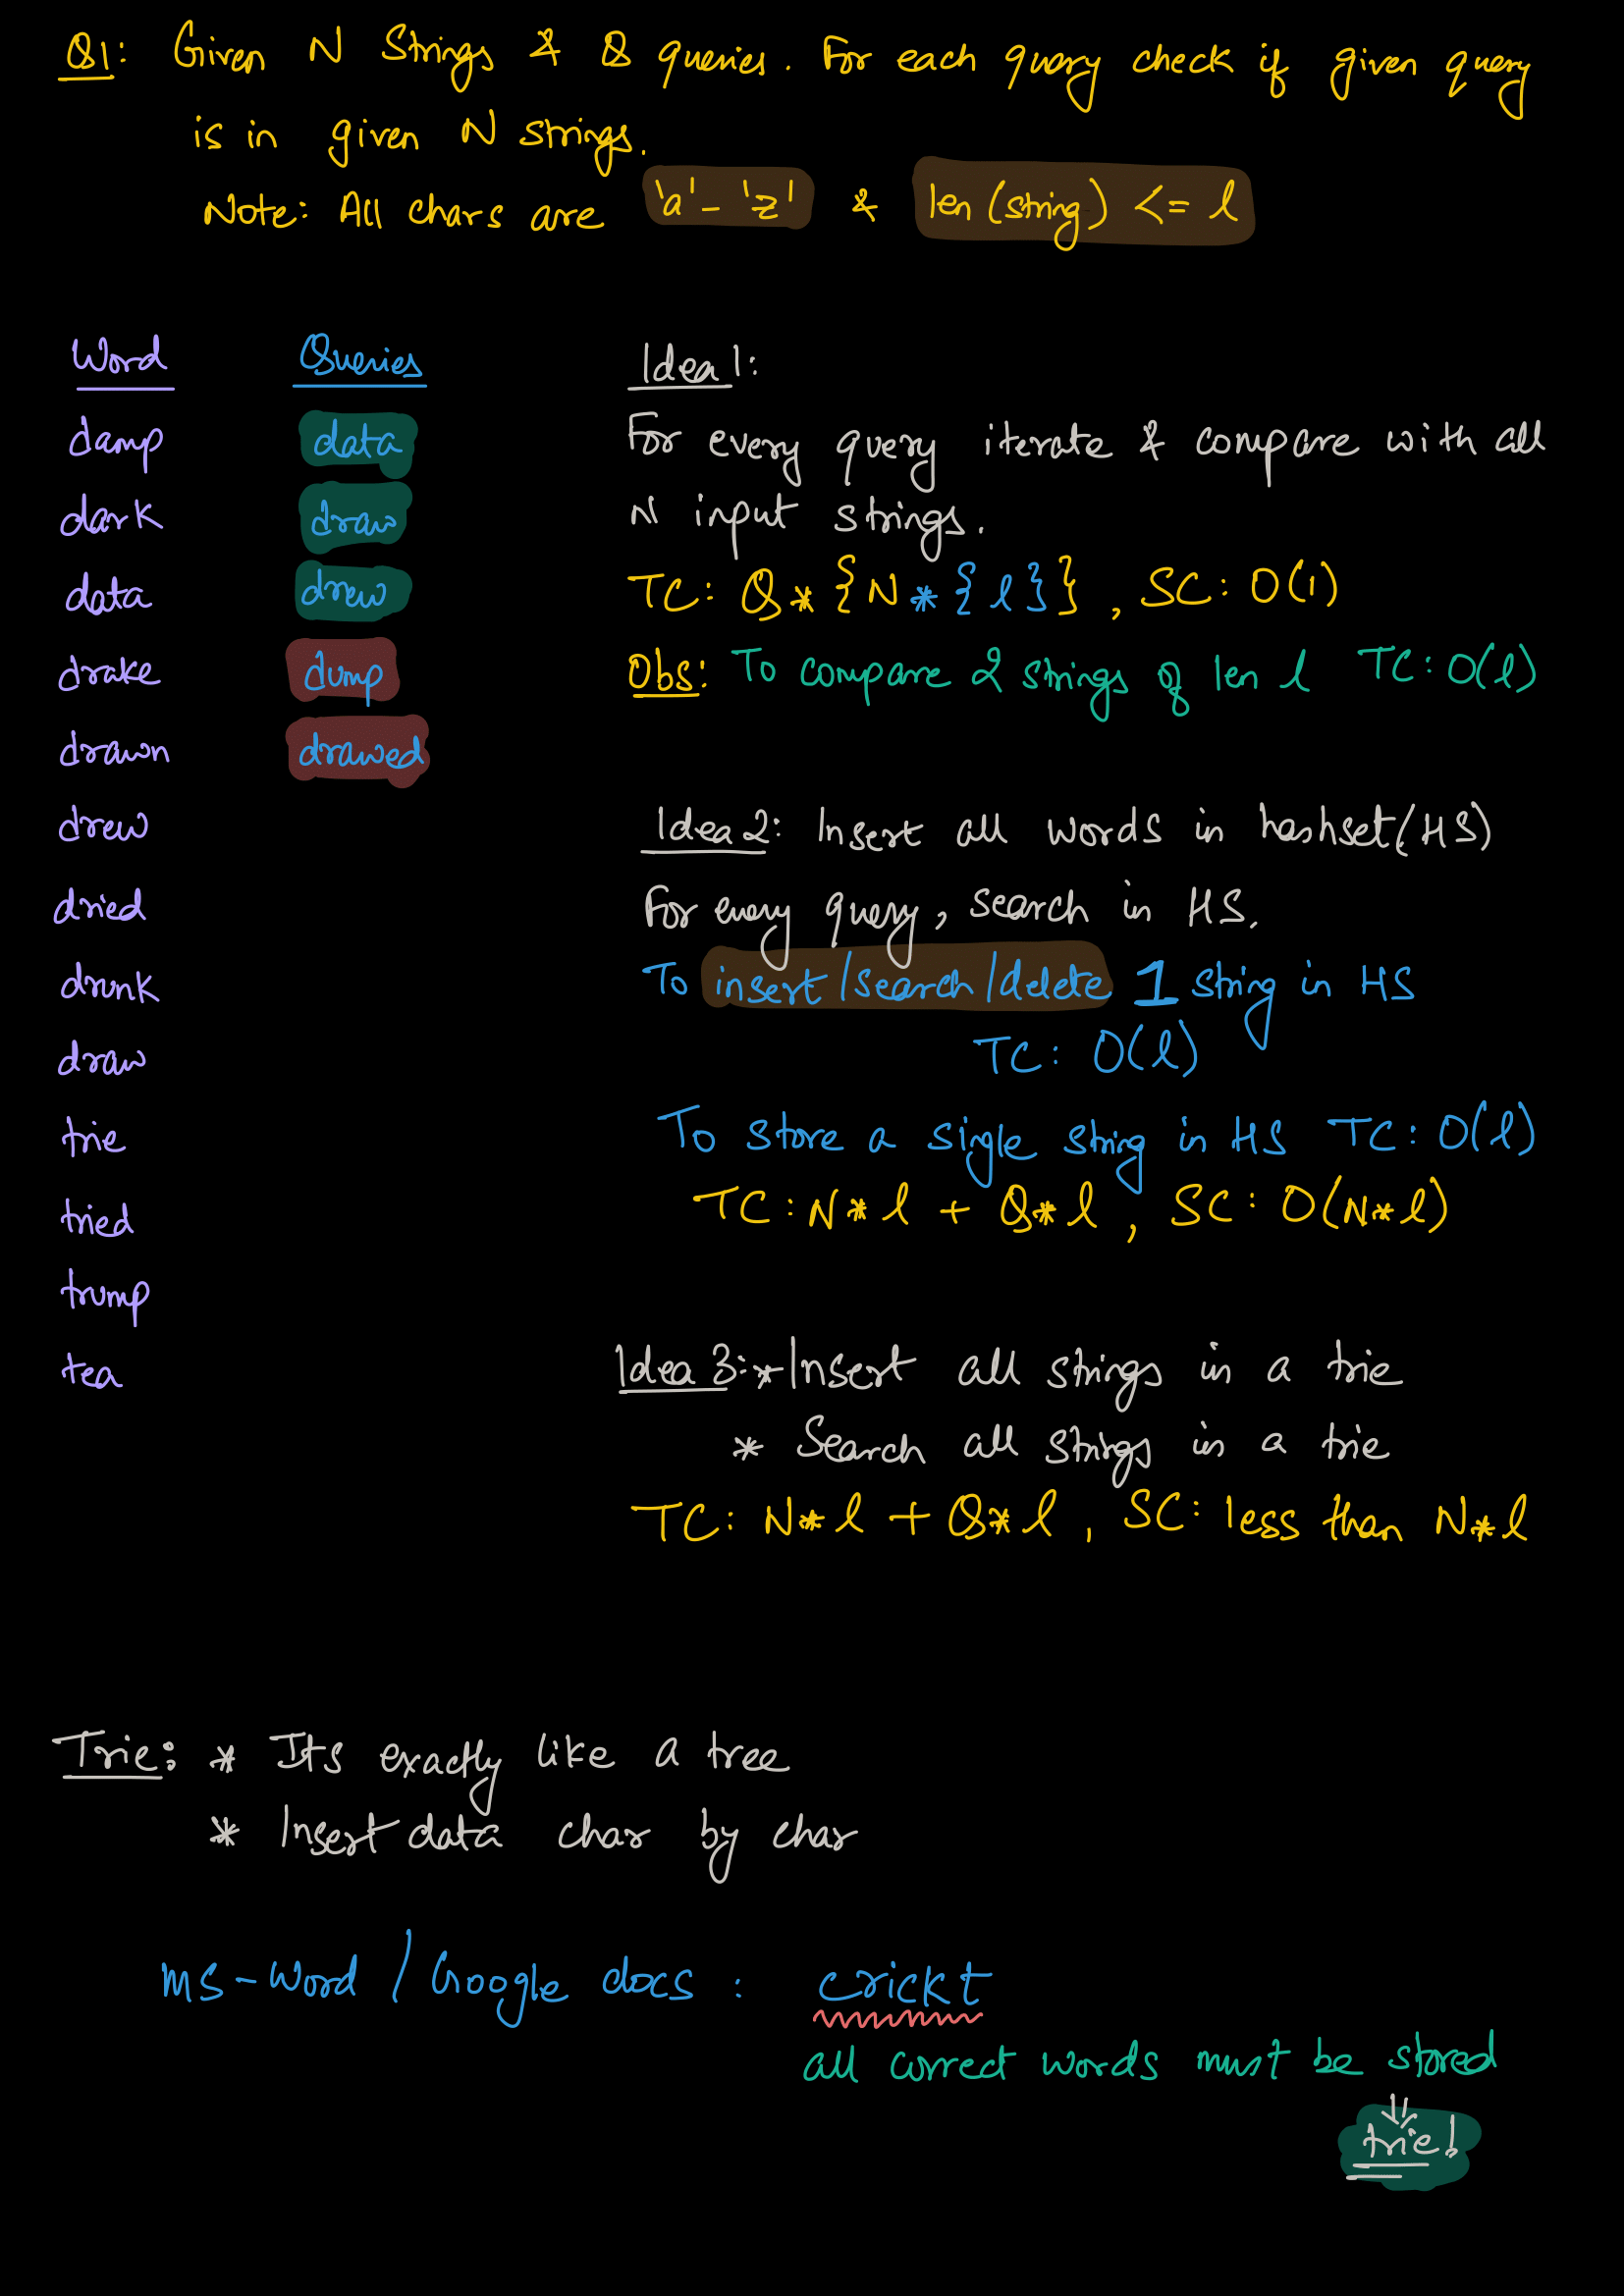 Q1: Given N Strings & Q queries. For each query check if given query
is in given N strings.
Note: All chars are 'a'-'z' & len(string) <= l
Word
damp
dark
data
drake
drawn
drew
dried
drunk
draw
trie
tried
trump
tea
Queries
data
draw
drew
dump
drawed
Idea 1:
For every query iterate & compare with all
N input strings.
TC: Q*{N*{l}}, SC: O(1)
Obs: To compare 2 strings of len l TC: O(l)
Idea 2: Insert all words in hashset(HS)
For every query, search in HS.
To insert/search/delete 1 string in HS
TC: O(l)
To store a single string in HS TC: O(l)
TC: N*l + Q*l, SC: O(N*l)
Idea 3: * Insert all strings in a trie
* Search all strings in a trie
TC: N*l + Q*l, SC: less than N*l
Trie: * Its exactly like a tree
* Insert data char by char
MS-Word / Google docs : crickt
all correct words must be stored
trie!